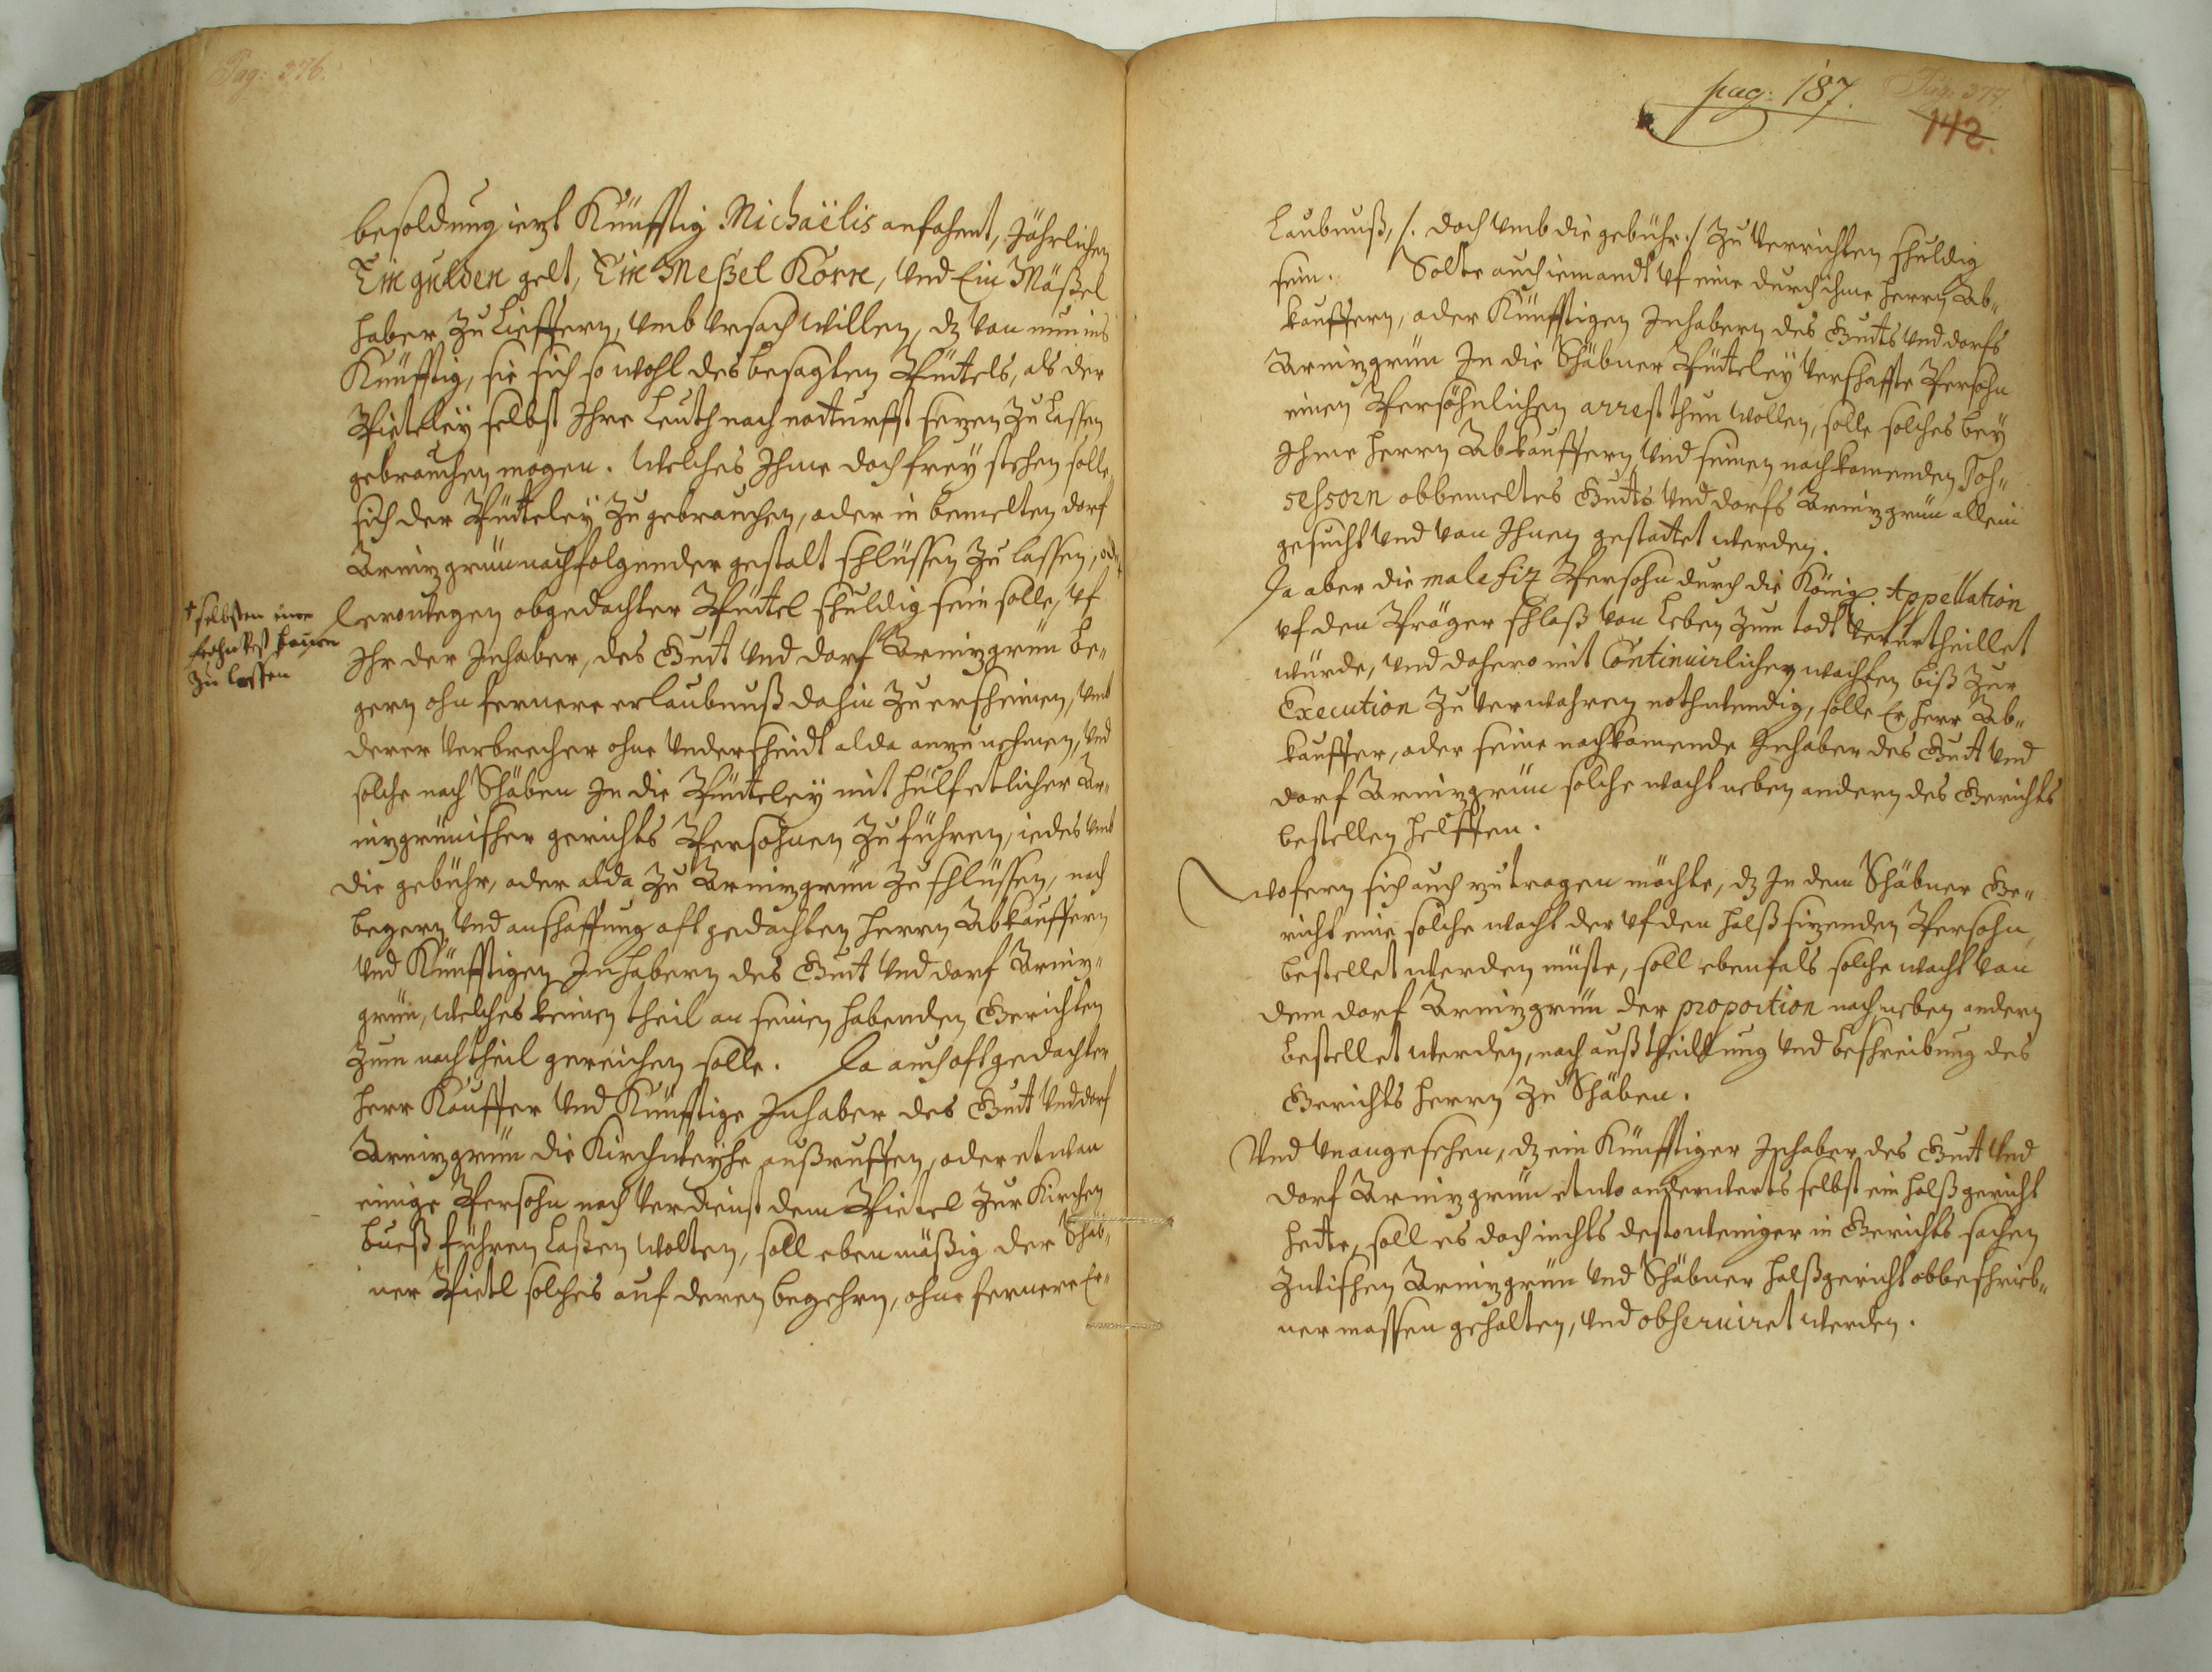 Pag: 376.
besoldung iezt Künfftig Michaëlis anfahent, Jährlichen
Ein gulden gelt, Ein Meßel Korn, Vnd Ein Mäßel
haber zu Lieffern, vmb Vrsach willen, dz von nun ins
Künfftig, sie sich so wohl des besagten Püttels, als der
Pietteley selbst Ihre Leuth nach notturfft sezen zu lassen
gebrauchen mögen. Welches Ihme doch frey stehen solle
sich der Pütteley zu gebrauchen, oder in bemelten dorf
Arnizgrün nachfolgender gestalt schlüssen zu lassen, od
† selbsten eine
frohnvest bauen
zu lassen
obgedachter Püttel schuldig sein solle, vf
Ihr der Inhaber, des Gutt Vnd dorf Arnizgrün be-
gern ohn fernere erlaubnuß dahin zu erscheinen, Vnd
derer Verbrecher ohne Vnderscheidt alda anzunehmen, Vnd
solche nach Schäben In die Pütteley mit hülf etlicher Ar-
nizgrünischer gerichts Persohnen zu führen, iedes Vmb
die gebühr, oder alda zu Arnizgrün zu schlüssen, nach
begern Vnd anschaffung oftgedachten Herrn Abkauffern
Vnd Künfftigen Inhabern des Gutt Vnd dorf Arniz-
grün, Welches keinen theil an seinen habenden Gerichten
zum nachtheil gereichen solle. Da auch oftgedachter
Herr Kauffer Vnd Künfftige Inhaber des Gutt Vnd dorf
Arnizgrün die Kirchweyhe außruffen, oder etwan
einige Persohn nach Verdienst dem Pietel zur Kirchen
bueß führen Laßen wolten, soll eben mäßig der Schäb-
ner Pietl solches auf deren begehrn, ohne fernere Er-
pag: 187.
Pag: 377.
142.
Laubnuß, /. doch Vmb die gebühr ./ zu Verrichten schuldig
sein. Solte auch iemandt vf eine durch ihme Herrn Ab-
kauffern, oder Künfftigen Inhabern des Gutts Vnd dorfs
Arnizgrün In die Schäbner Pütteley Verschaffte Persohn
einen Persöhnlichen arrest thun wollen, solle solches bey
Ihme Herrn Abkauffern Vnd seinen nachkomenden Poß-
seßorn obbemeltes Gutts Vnd dorfs Arnizgrün allein
gesucht Vnd von Ihnen gestattet werden.
Da aber die malefiz Persohn durch die Königl. Appellation
vf den Präger schloß von Leben zum todt Verurtheillet
würde, Vnd dahero mit Continuirlichen wachten biß zur
Execution zu Verwahren nothwendig, solle Er Herr Ab-
kauffer, oder seine nachkomende Inhaber des Gutt Vnd
dorf Arnizgrün solche wacht neben andern des Gerichts
bestellen helffen.
Wofern sich auch zutragen möchte, dz In dem Schäbner Ge-
richt eine solche wacht der vf den halß sizenden Persohn
bestellet werden müste, soll ebenfals solche wacht von
dem dorf Arnizgrün der proportion nach neben andern
bestellet werden, nach außtheillung Vnd beschreibung des
Gerichts Herrn zu Schäben.
Vnd Vnangesehen, dz ein Künfftiger Inhaber des Gutt Vnd
dorf Arnizgrün etwo anderwerts selbst ein halßgericht
hette, soll es doch nichts destoweniger in Gerichts sachen
zwischen Arnizgrün Vnd Schäbner halßgericht obbeschrieb-
ner massen gehalten, Vnd observiret werden.